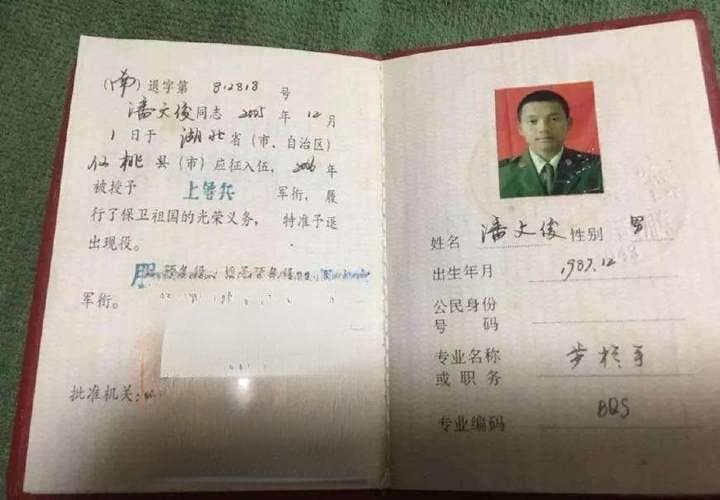 (南)退字第 812818 号
潘文俊同志 2005 年 12 月
1 日于 湖北省(市、自治区)
仙桃县(市)应征入伍，2006年
被授予 上等兵 军衔，履
行了保卫祖国的光荣义务，特准予退
出现役。
服预备役
军衔。
批准机关：
姓名 潘文俊 性别 男
出生年月 1987.12
公民身份
号 码
专业名称 步枪手
或职务
专业编码 BQS